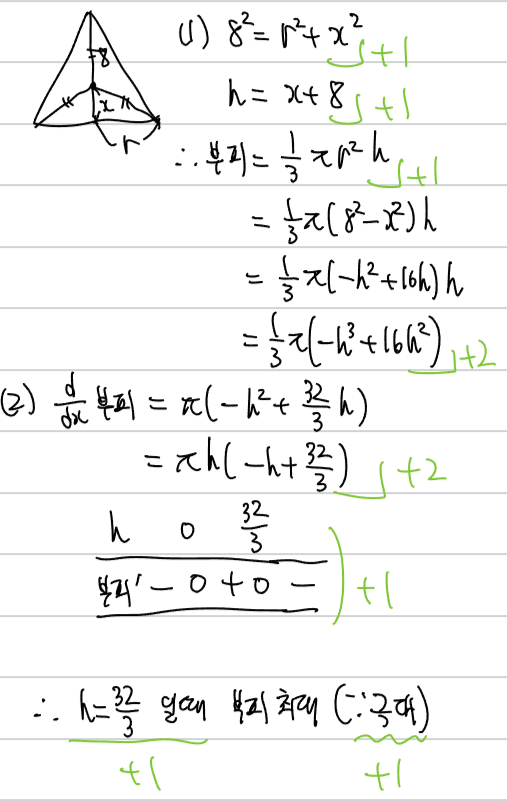 8
x
r
(1) 8² = r² + x² +1
h = x + 8 +1
∴ 부피 = 1/3 πr²h +1
= 1/3 π(8² - x²)h
= 1/3 π(-h² + 16h)h
= 1/3 π(-h³ + 16h²) +2
(2) d/dx 부피 = π(-h² + 32/3 h)
= πh(-h + 32/3) +2
h 0 32/3
부피' - 0 + 0 - +1
∴ h = 32/3 일때 부피 최대 (∵극대)
+1 +1